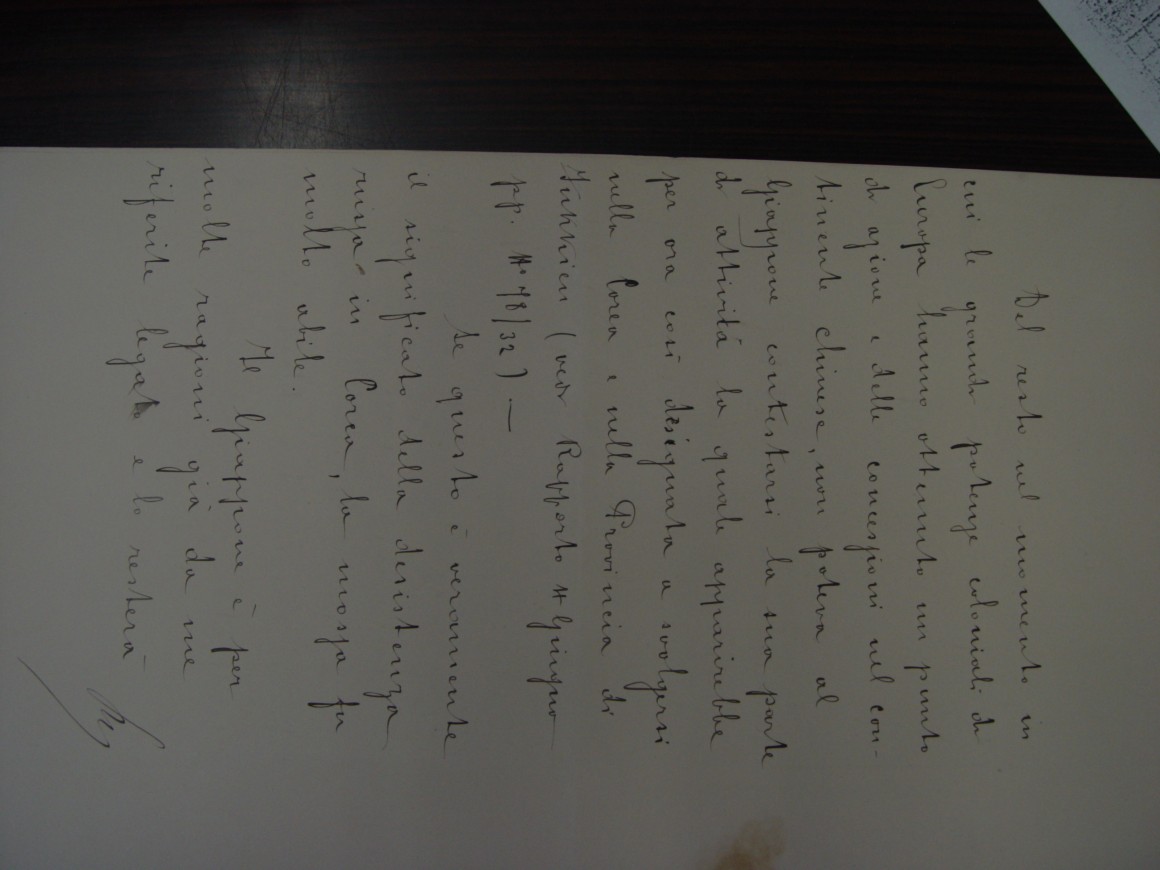 Del resto nel momento in
cui le grandi potenze coloniali di
Europa hanno ottenuto un punto
di azione e delle concessioni nel con-
tinente chinese, non poteva al
Giappone contestarsi la sua parte
di attività la quale apparirebbe
per ora così designata a svolgersi
nella Corea e nella Provincia di
Fukkien (vedi Rapporto 4 Giugno
pp. N° 78/32) —
Se questo è veramente
il significato della desistenza
russa in Corea, la mossa fu
molto abile.
Il Giappone è per
molte ragioni già da me
riferite legato e lo resterà